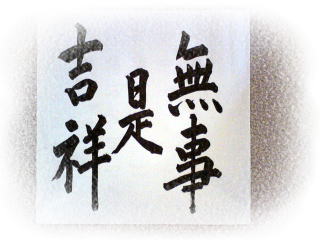 無事
是
吉祥